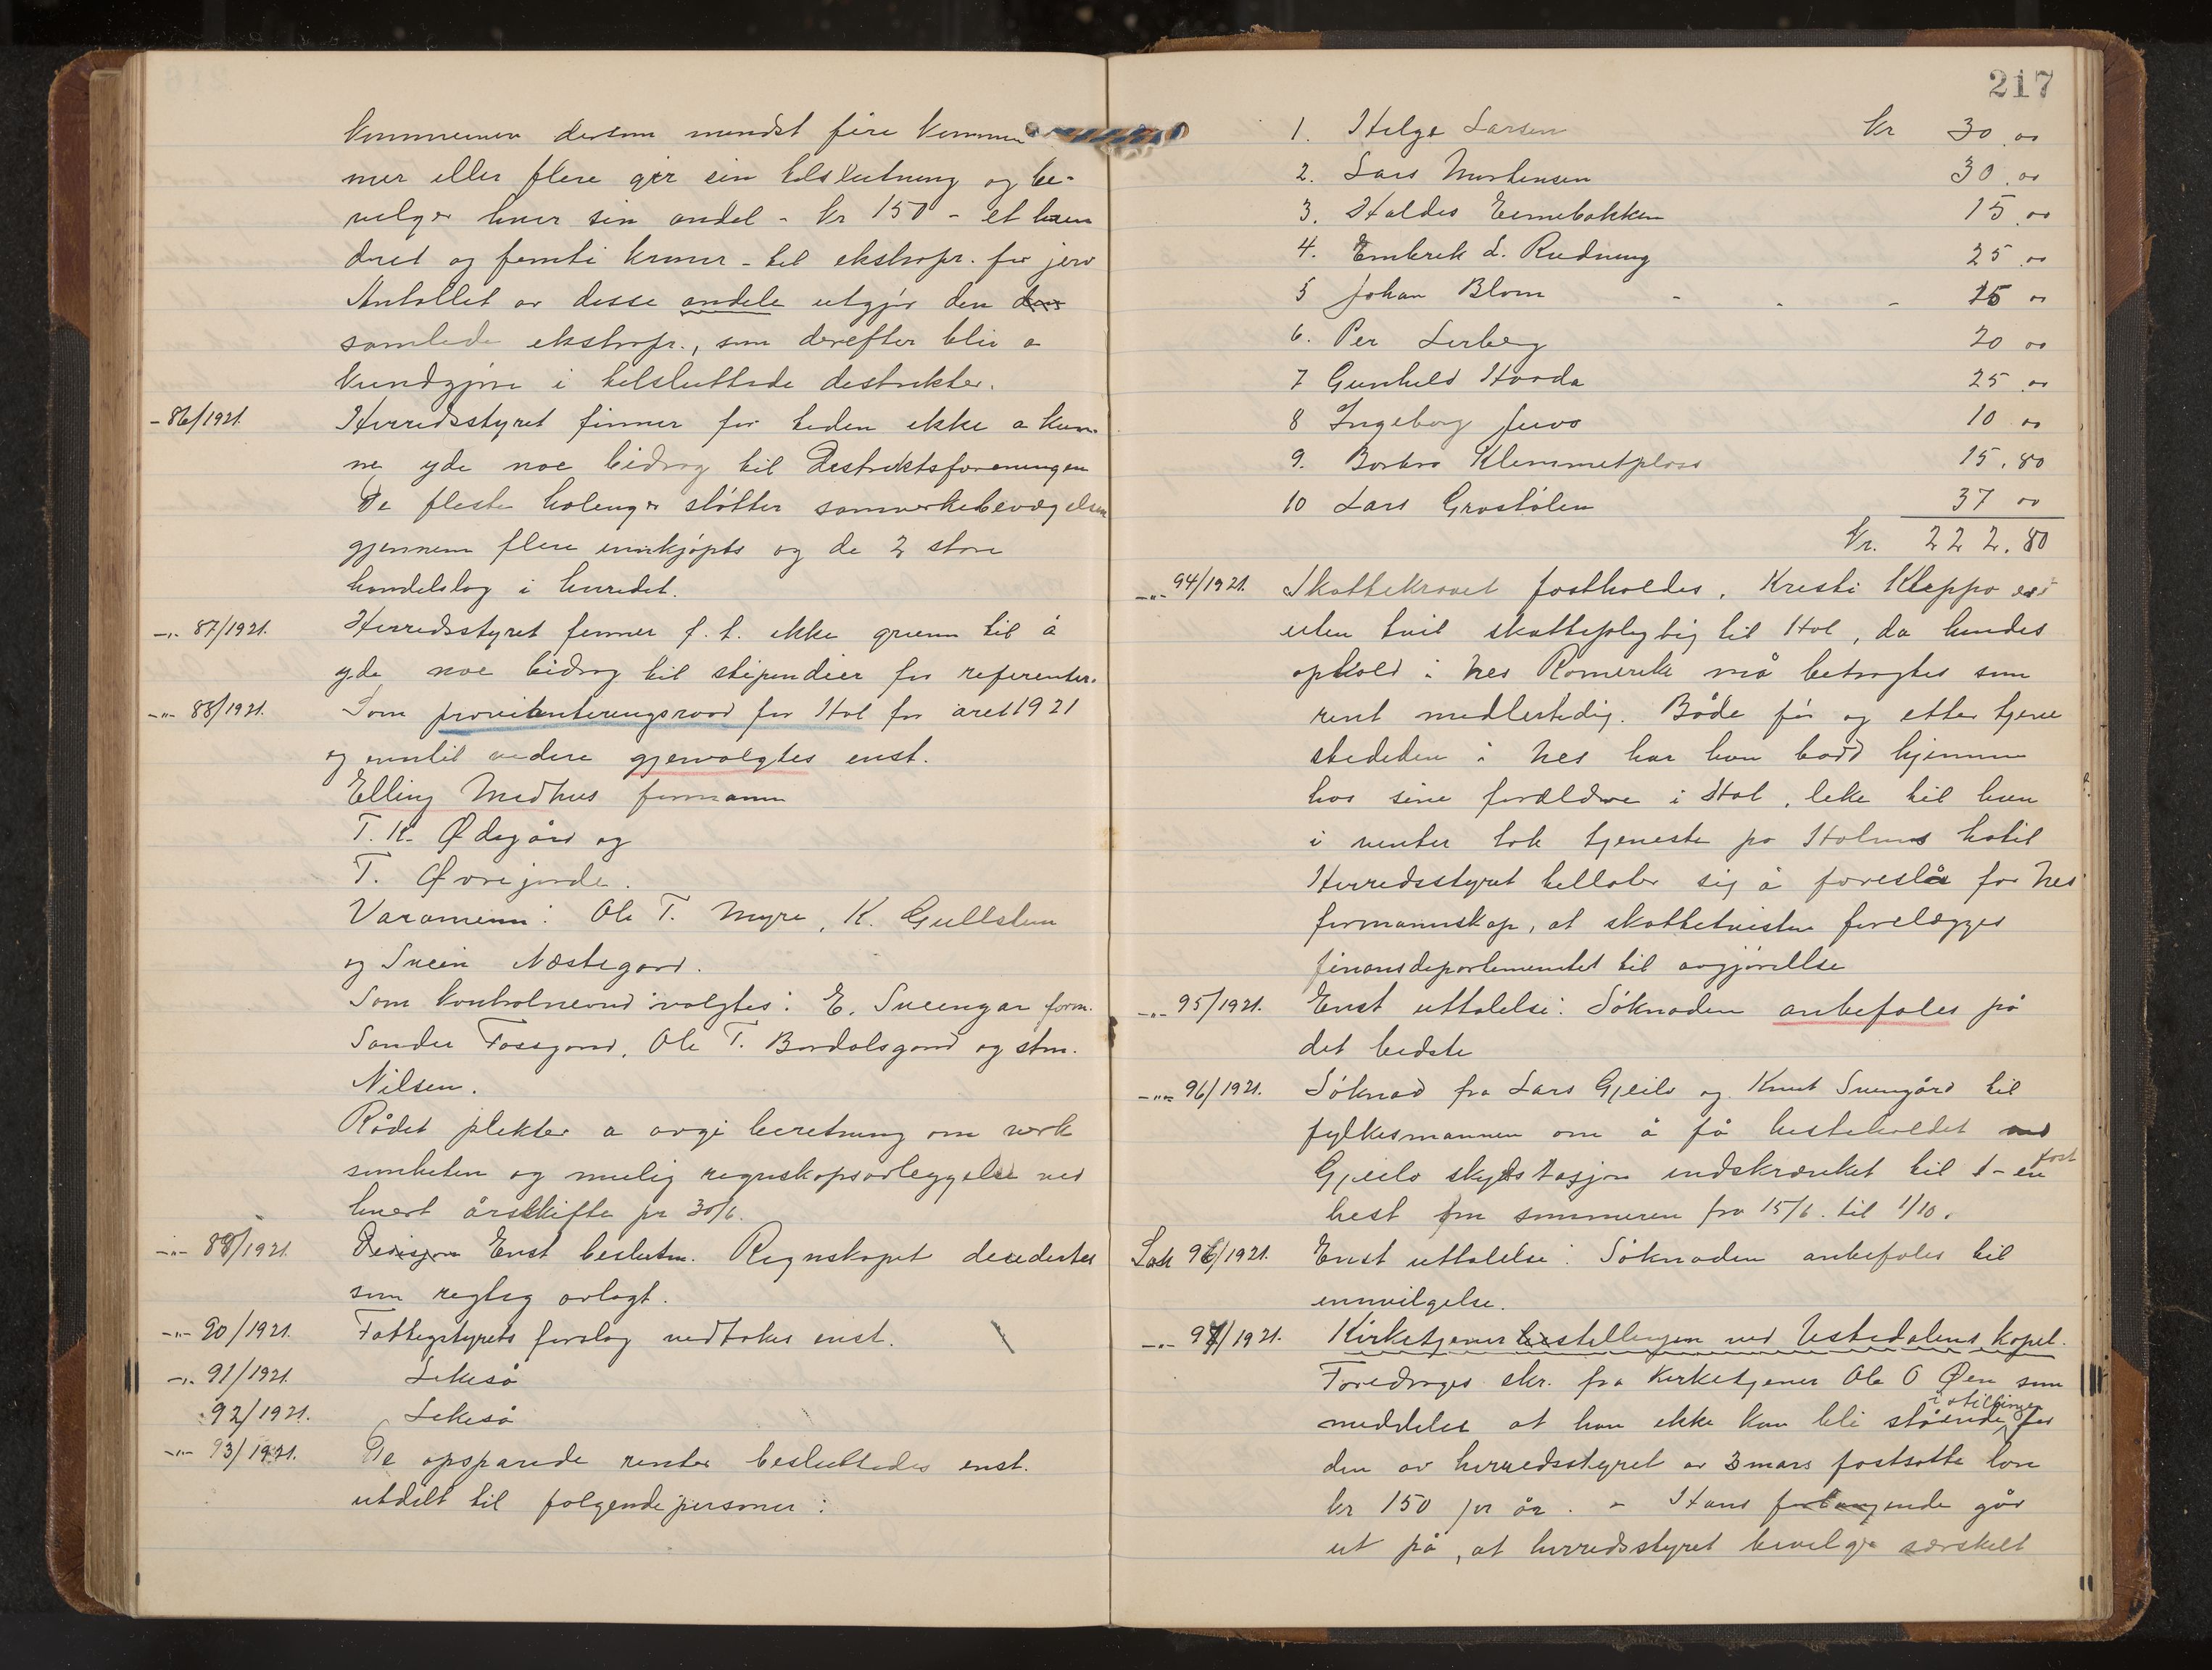 kommuner dersom mindst fire kommu
ner eller flere gir sin tilslutning og be-
vilger hver sin andel - kr 150 - et hun
dred og femti kroner - til ekstrapr. for jerv
Antallet av disse andele utgjør den den
samlede ekstrapr., som derefter blir a
kundgjøre i tilsluttede distrikter.
- 86/1921. Herredsstyret finner for tiden ikke a kun-
ne yde noe bidrag til Distriktsforeningen
De fleste holinger støtter samvirkebevægelsen
gjennem flere innkjøpts og de 2 store
handelslag i herredet.
-"- 87/1921. Herredsstyret finner f. t. ikke grunn til å
yde noe bidrag til stipendier for referenter.
-"- 88/1921. Som provianteringsraad for Hol for året 1921
og inntil videre gjenvalgtes enst.
Elling Medhus formann
T. K. Ødegård og
T. Øvrejorde.
Varamenn: Ole T. Myre, K. Gullsten
og Svein Næstegard.
Som kontrolnevnd valgtes: E. Sveengar form.
Sander Fossgard, Ole T. Bardalsgard og stm.
Nilsen.
Rådet plikter a avgi beretning om verk
somheten og mulig regnskapsavleggelse ved
hvert årsskifte pr 30/6.
-"- 89/1921. Decisjon Enst beslutn. Regnskapet decidertes
som regtig avlagt.
-"- 90/1921. Fattigstyrets forslag vedtokes enst.
-"- 91/1921. Likeså
92/1921. Likeså
-"- 93/1921. De opsparede renter besluttedes enst.
utdelt til følgende personer:
217
1. Helge Larsen kr 30.00
2. Lars Mortensen 30.00
3. Haldis Eimebakken 15.00
4. Embrik L. Rudning 25.00
5 Johan Blom - - - 15 00
6. Per Lerberg 20 00
7 Gunhild Hovda 25.00
8 Ingeborg Juvo 10 00
9. Barbro Klemmetplass 15.80
10 Lars Grostølen 37 00
kr. 222.80
-"- 94/1921. Skattekravet fastholdes. Kristi Kleppo er
uten tvil skattepligtig til Hol, da hendes
ophold i Nes Romerike må betragtes som
rent midlertidig. Både før og etter tjene
stetiden i Nes har hun bodd hjemme
hos sine forældre i Hol, like til hun
i vinter tok tjeneste pa Holms hotil
Herredsstyret tillater sig å foreslå for Nes
formannskap, at skattetvisten forelægges
finansdepartementet til avgjørelse
-"- 95/1921. Enst uttalelse: Søknaden anbefales på
det bedste
-"- 96/1921. Søknad fra Lars Gjeilo og Knut Sveengård til
fylkesmannen om å få hesteholdet ved
Gjeilo skydsstasjon indskrænket til 1 - en fast
hest om sommeren fra 15/6. til 1/10.
Sak 96/1921. Enst uttalelse: Søknaden anbefales til
innvilgelse.
-"- 97/1921. Kirketjenerbestillingen ved Ustedalens kapel.
Foredroges skr. fra kirketjener Ole O Øen som
meddeler at han ikke kan bli stående i stillingen for
den av herredsstyret av 3 mars fastsatte løn
kr 150 pr år. - Hans forlangende går
ut på, at herredsstyret bevilge særskilt